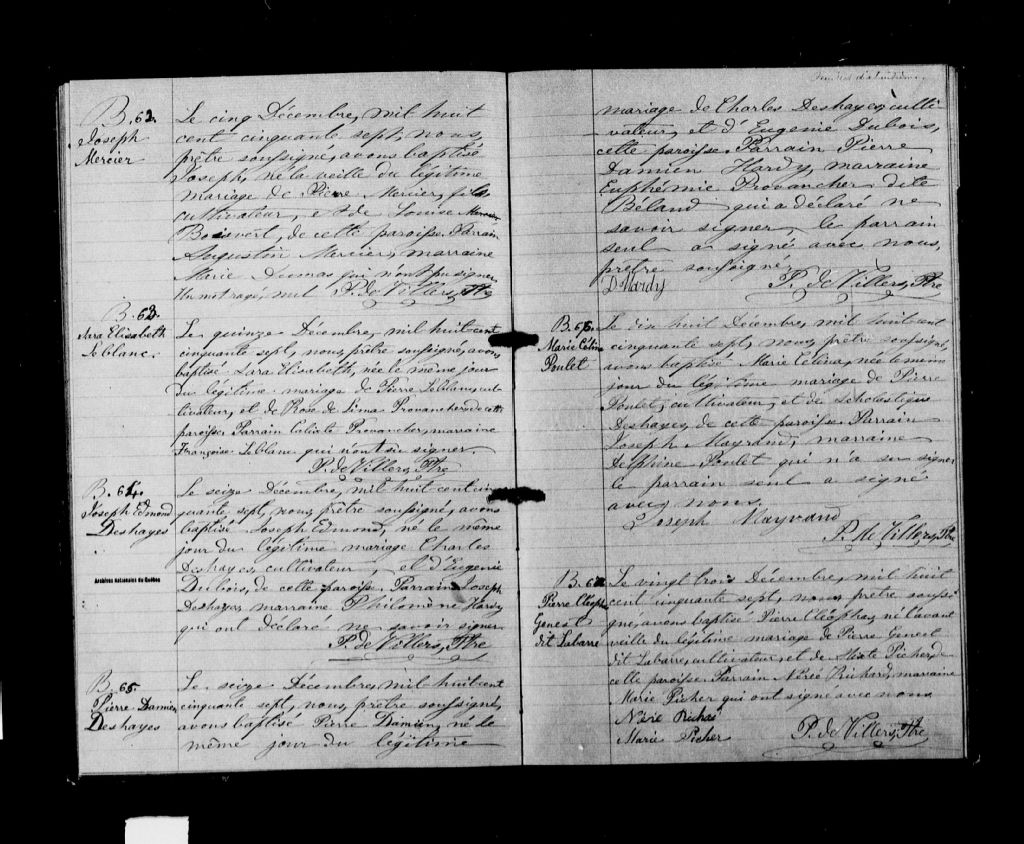 B. 62.
Joseph
Mercier
Le cinq Décembre, mil huit
cent cinquante sept, nous,
prêtre soussigné, avons baptisé
Joseph, né la veille du légitime
mariage de Pierre Mercier, fils
cultivateur, et de Louise Mercier
Boisvert, de cette paroisse. Parrain
Augustin Mercier, marraine
Marie Dumas qui n'ont pu signer.
Un mot rayé, nul P. de Villers, Ptre
B. 63.
Sara Elisabeth
Leblanc.
Le quinze Décembre, mil huit cent
cinquante sept, nous, prêtre soussigné, avons
baptisé Sara Elisabeth, née le même jour
du légitime mariage de Pierre Leblanc, cul-
tivateur, et de Rose de Lima Provancher, de cette
paroisse. Parrain Calixte Provancher, marraine
Françoise Leblanc qui n'ont su signer.
P. de Villers, Ptre
B. 64.
Joseph Edmond
Deshayes
Archives nationales du Québec
Le seize Décembre, mil huit cent cin-
quante sept, nous, prêtre soussigné, avons
baptisé Joseph Edmond, né le même
jour du légitime mariage Charles
Deshayes, cultivateur, et d'Eugenie
Dubois, de cette paroisse. Parrain Joseph
Deshayes, marraine Philomène Hardy
qui ont déclaré ne savoir signer
P. de Villers, Ptre
B. 65.
Pierre Damien
Deshayes
Le seize Décembre, mil huit cent
cinquante sept, nous, prêtre soussigné,
avons baptisé Pierre Damien, né le
même jour du légitime
mariage de Charles Deshayes, culti-
vateur, et d'Eugenie Dubois,
cette paroisse. Parrain Pierre
Damien Hardy, marraine
Euphémie Provancher dite
Béland qui a déclaré ne
savoir signer, le parrain
seul a signé avec nous,
prêtre soussigné.
D. Hardy P. de Villers, Ptre
B. 66.
Marie Célina
Poulet
Le dix huit Décembre, mil huit cent
cinquante sept, nous, prêtre soussigné,
avons baptisé Marie Célina, née le même
jour du légitime mariage de Pierre
Poulet, cultivateur, et de Scholastique
Deshayes, de cette paroisse. Parrain
Joseph Mayrand, marraine
Delphine Poulet qui n'a su signer,
le parrain seul a signé
avec nous.
Joseph Mayrand
P. de Villers, Ptre
B. 67.
Pierre Cléophas
Genest
dit Labarre
Le vingt trois Décembre, mil huit
cent cinquante sept, nous, prêtre soussi-
gné, avons baptisé Pierre Cléophas, né l'avant
veille du légitime mariage de Pierre Genest
dit Labarre, cultivateur, et de Picher, de
cette paroisse. Parrain Nérée Richard, marraine
Marie Picher qui ont signé avec nous
Nérée Richard
Marie Picher P. de Villers, Ptre